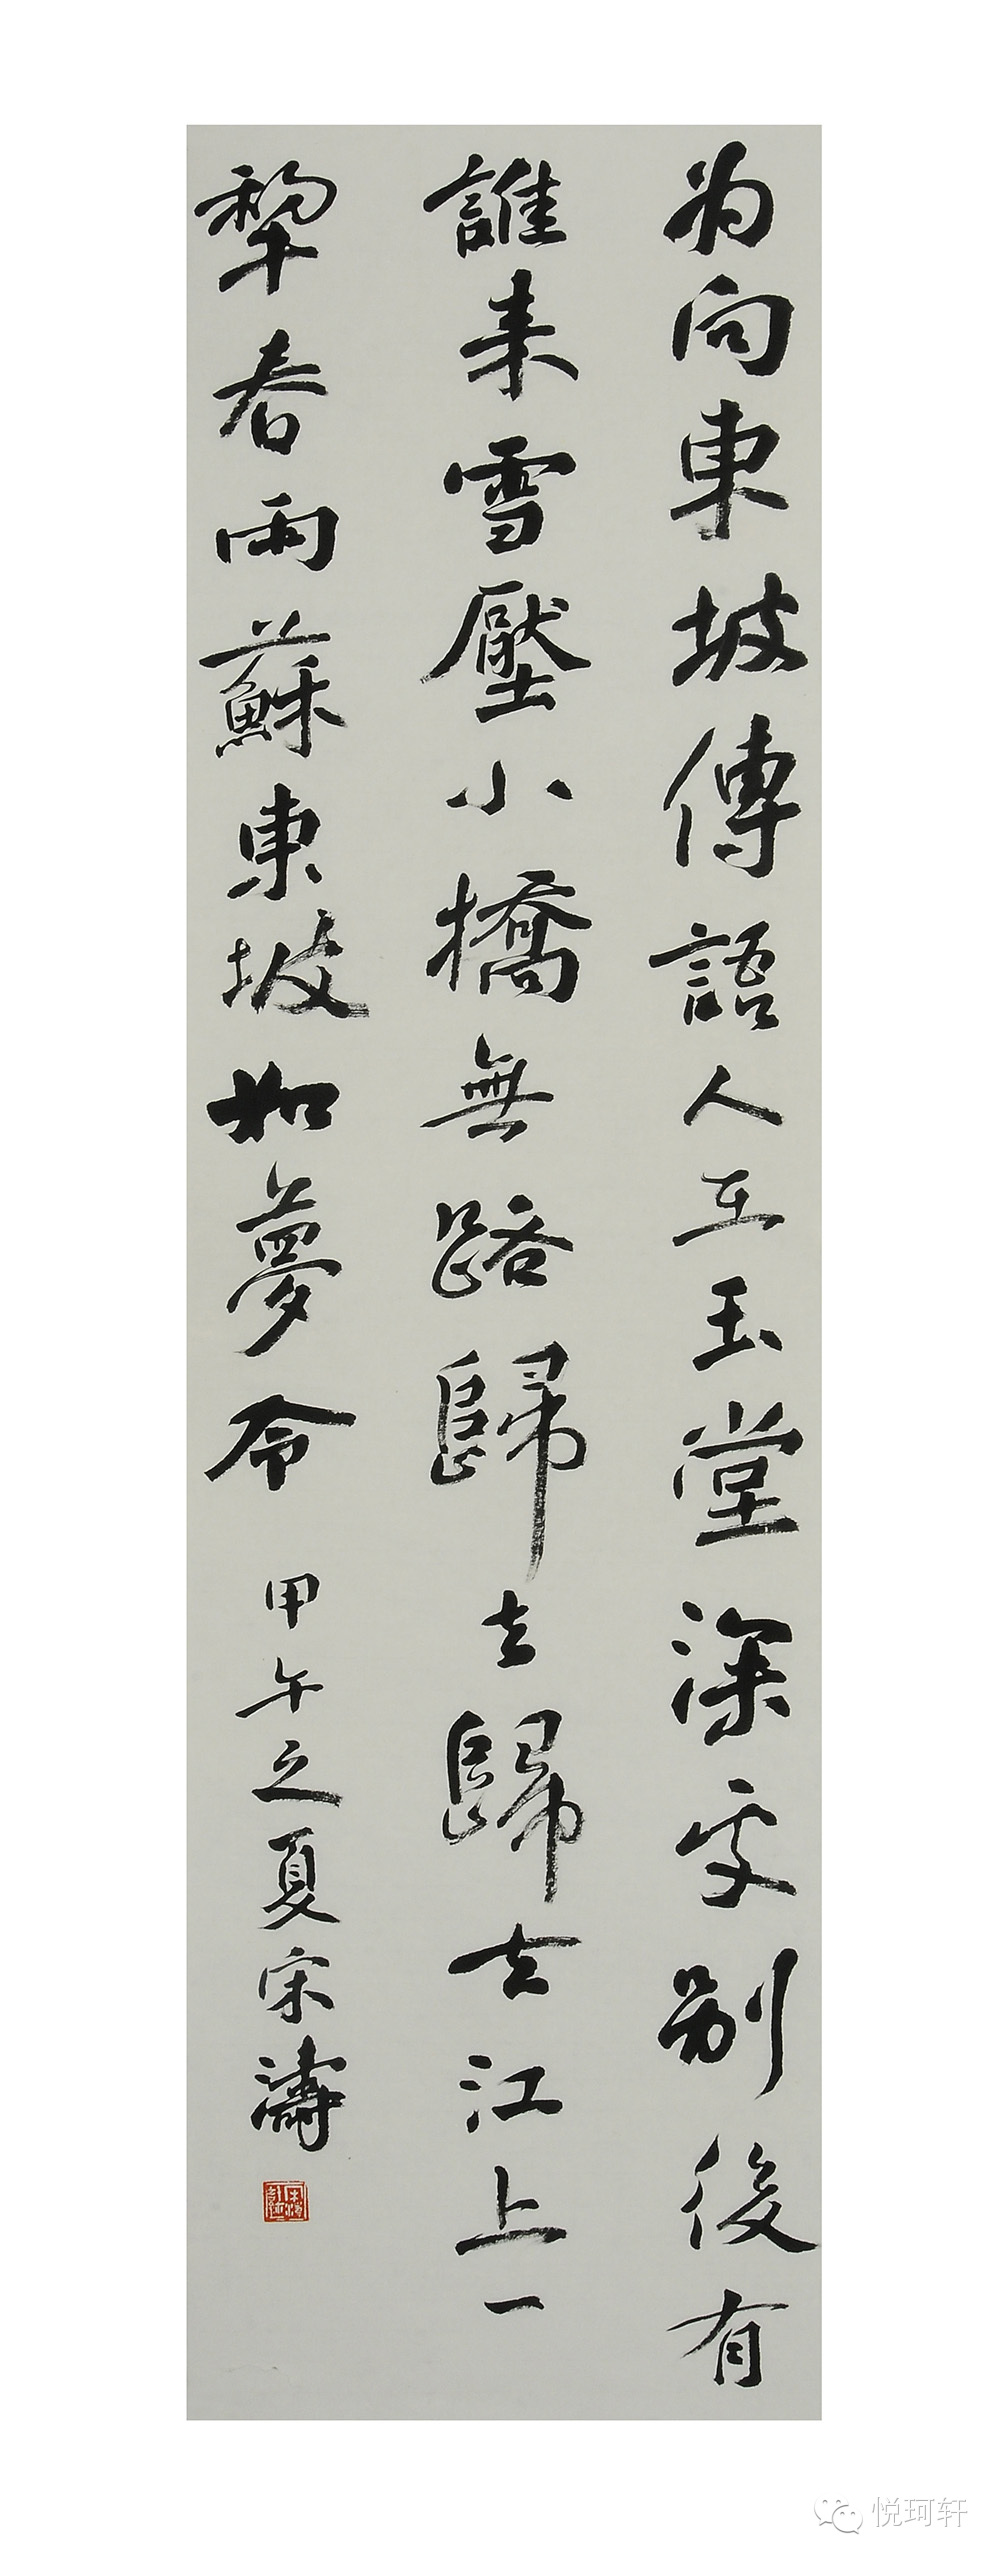 为向東坡傳語人在玉堂深处別後有
誰来雪壓小橋無路歸去歸去江上一
犂春雨蘇東坡如夢令 甲午之夏宋濤
悦珂轩